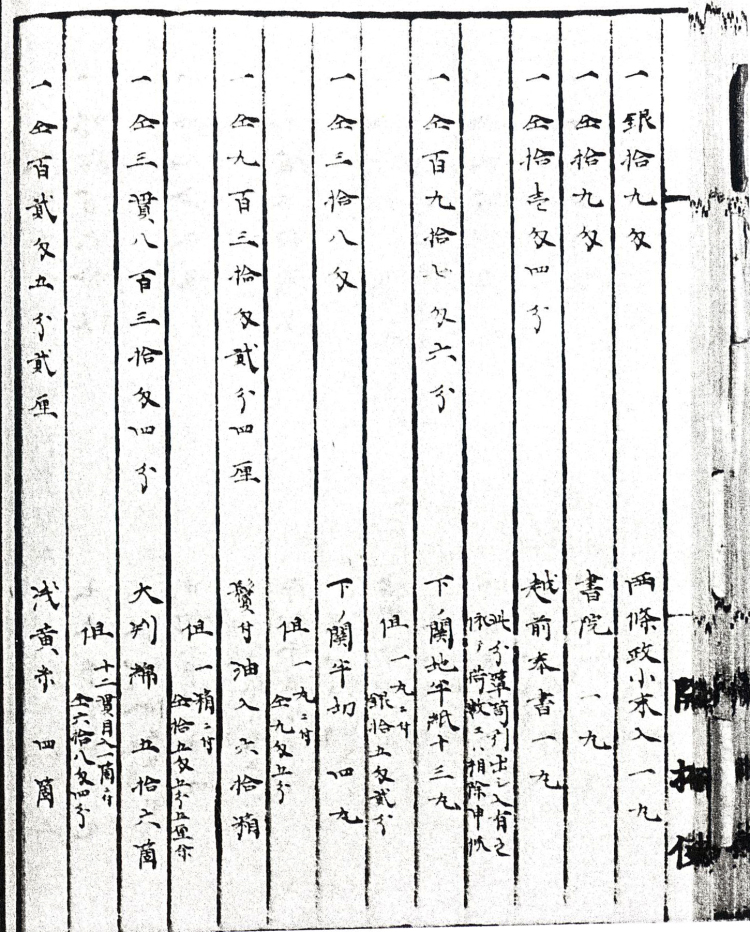 開拓使
一銀拾九匁 小 入 一丸
一仝拾九匁 書院 一丸
一仝拾壱匁四分 越前奉書一丸
此分箪笥引出シ入有之
荷数エハ相除申候
一仝百九拾七匁六分 下ノ関地半紙十三丸
但一丸ニ付
銀拾五匁貳分
一仝三拾八匁 下ノ関半切 四丸
但一丸ニ付
仝九匁五分
一仝九百三拾匁貳分四厘 鬢付油入六拾箱
但一箱ニ付
仝拾五匁五分五厘余
一仝三貫八百三拾匁四分 大判綿 五拾六箇
但十二貫目入一箇ニ付
仝六拾八匁四分
一仝百貳匁五分貳厘 浅黄 四箇